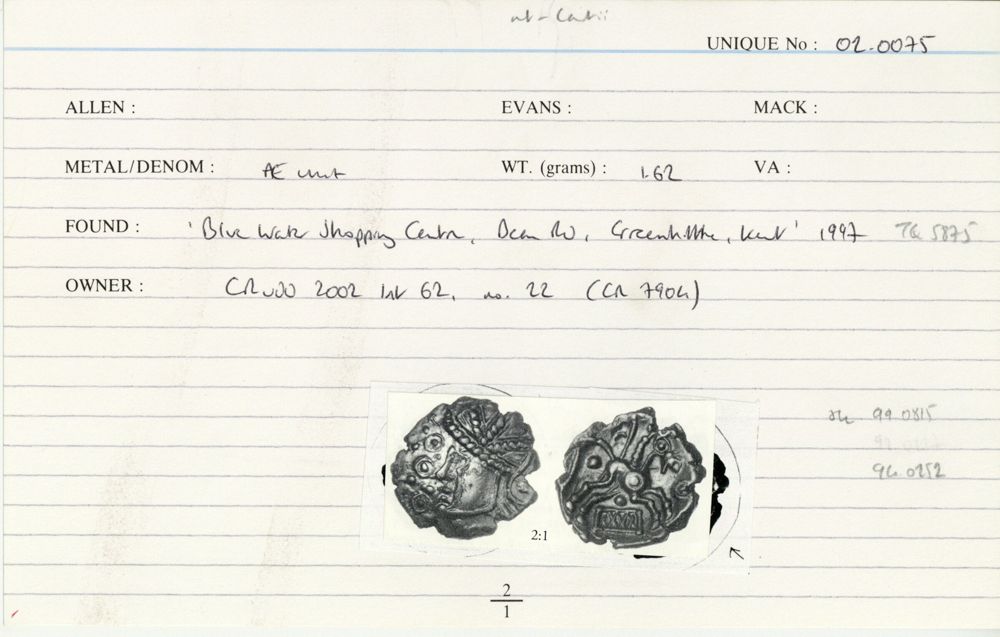 UNIQUE No : 02.0075
ALLEN : EVANS : MACK :
METAL/DENOM : AE unit WT. (grams) : 1.62 VA :
FOUND : 'Blue Water Shopping Centre, Bean Rd, Greenhithe, Kent' 1997 TQ 5875
OWNER : CR 2002 62, no. 22 (CR 7904)
99.0815
94.0252
2:1
2
1